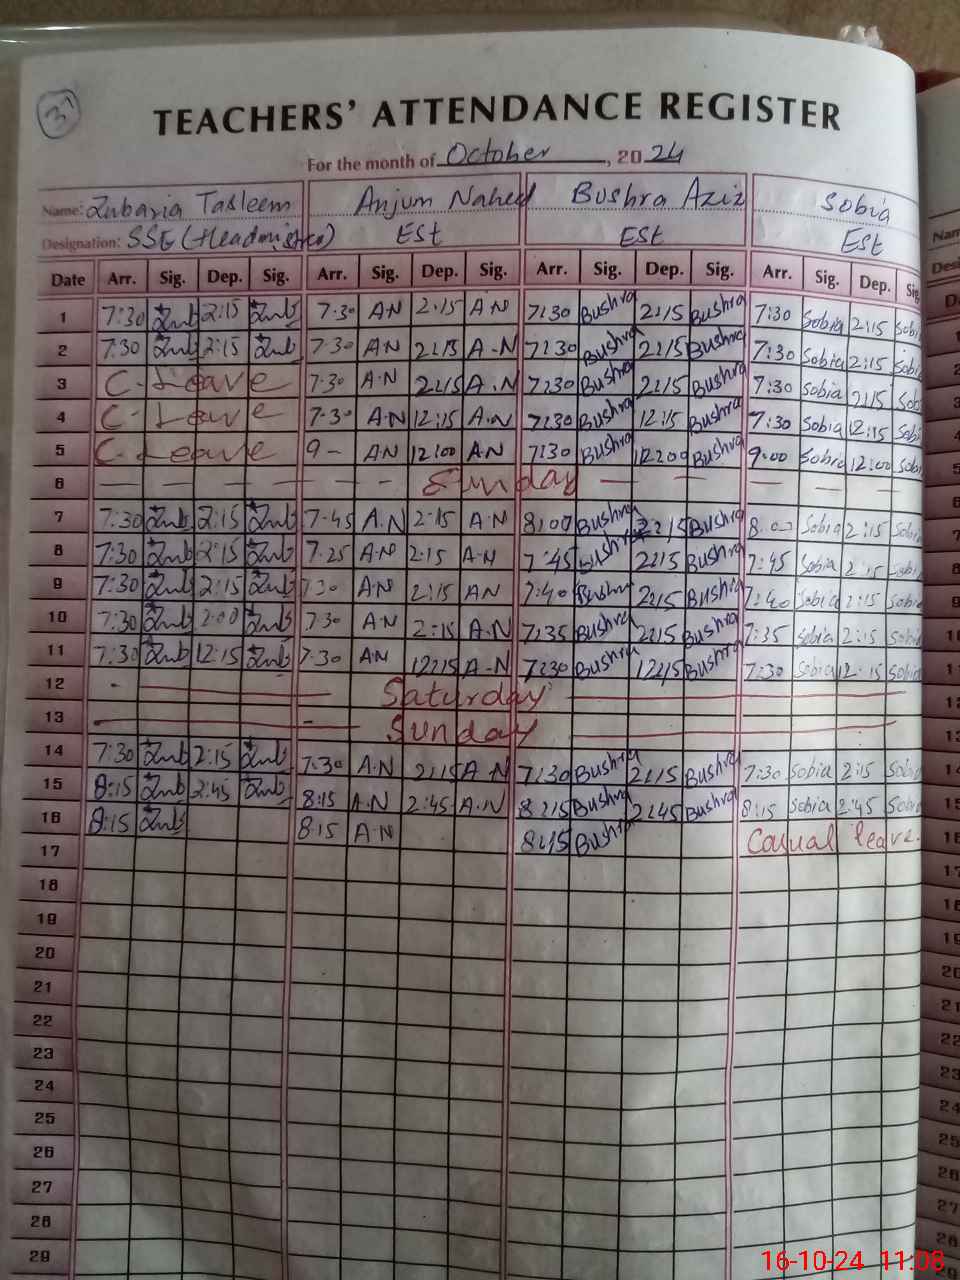 37
TEACHERS' ATTENDANCE REGISTER
For the month of October, 2024
Name: Zubaria Tasleem Anjum Naheed Bushra Aziz Sobia
Designation: SSE (Headmistress) ESt ESt ESt
Date Arr. Sig. Dep. Sig. Arr. Sig. Dep. Sig. Arr. Sig. Dep. Sig. Arr. Sig. Dep. Sig
1 7:30 Zub 2:15 Zub 7:30 A N 2:15 A N 7:30 Bushra 2:15 Bushra 7:30 Sobia 2:15 Sobia
2 7:30 Zub 2:15 Zub 7:30 A-N 2:15 A-N 7:30 Bushra 2:15 Bushra 7:30 Sobia 2:15 Sobia
3 C-Leave 7:30 A.N 2:15 A.N 7:30 Bushra 2:15 Bushra 7:30 Sobia 2:15 Sob
4 C-Leave 7:30 A.N 12:15 A.N 7:30 Bushra 12:15 Bushra 7:30 Sobia 12:15 Sobi
5 C-Leave 9- A-N 12:00 A-N 7:30 Bushra 12:00 Bushra 9:00 Sobia 12:00 Sobi
6 Sunday
7 7:30 Zub 2:15 Zub 7:45 A.N 2:15 A.N 8:00 Bushra 2:15 Bushra 8:00 Sobia 2:15 Sobia
8 7:30 Zub 2:15 Zub 7:25 A-N 2:15 A-N 7:45 Bushra 2:15 Bushra 7:45 Sobia 2:15 Sobia
9 7:30 Zub 2:15 Zub 7:30 A-N 2:15 AN 7:40 Bushra 2:15 Bushra 7:40 Sobia 2:15 Sobia
10 7:30 Zub 2:00 Zub 7:30 A-N 2:15 A.N 7:35 Bushra 2:15 Bushra 7:35 Sobia 2:15 Sobia
11 7:30 Zub 12:15 Zub 7:30 AN 12:15 A-N 7:30 Bushra 12:15 Bushra 7:30 Sobia 12:15 Sobia
12 Saturday
13 Sunday
14 7:30 Zub 2:15 Zub 7:30 A.N 2:15 A N 7:30 Bushra 2:15 Bushra 7:30 Sobia 2:15 Sobia
15 8:15 Zub 2:45 Zub 8:15 A.N 2:45 A.N 8:15 Bushra 2:45 Bushra 8:15 Sobia 2:45 Sobia
16 8:15 Zub 8:15 A-N 8:15 Bushra Casual leave.
17
18
19
20
21
22
23
24
25
26
27
28
29
16-10-24 11:08